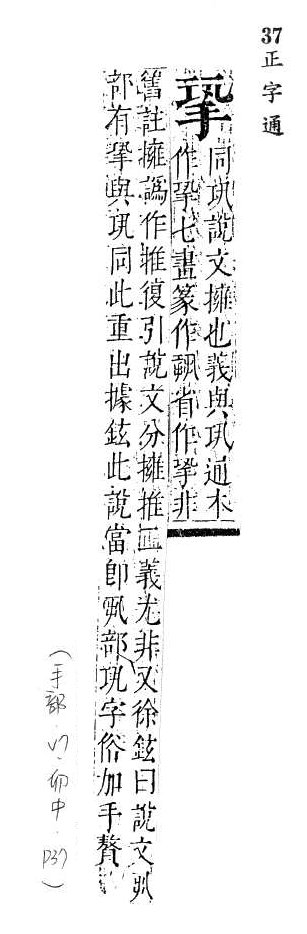 37 正字通
㧬 同巩說文擁也義與巩通本
作㧬七畫篆作𢀜省作㧬非
舊註擁譌作推復引說文分擁推二義尤非又徐鉉曰說文丮
部有㧬與巩同此重出據鉉此說當卽丮部巩字俗加手贅
(手部.47.卯中.P37)